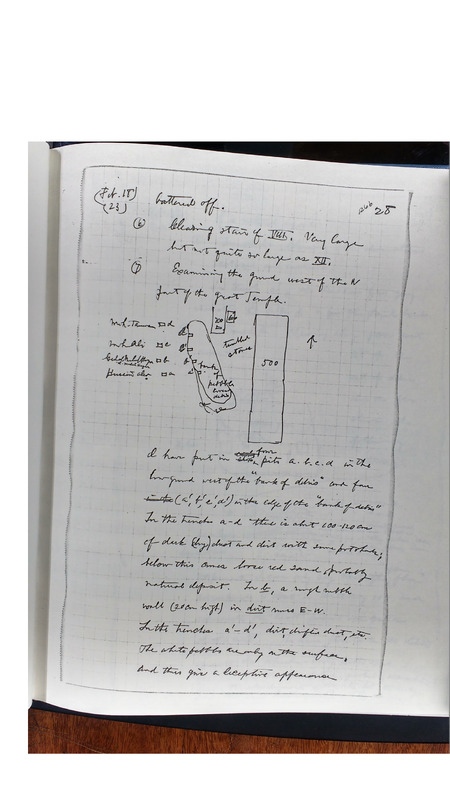 (Feb. 18)
(23)
28
battered off.
⑥ Clearing stairs of VIII. Very large
but not quite so large as XII.
⑦ Examining the grnd west of the N
part of the great Temple.
d
c
b
a
500
bank
of
pebbles
debris
I have put in four pits a. b. c. d in the
low ground west of the "bank of debris" and four
(a', b', c', d') in the edge of the "bank of debris"
In the trenches a-d there is abt 100-120 cm
of dark (dry) dust and dirt with some potsherds;
below this comes loose red sand, probably
natural deposit. In b, a rough rubble
wall (20cm high) in dirt runs E-W.
In the trenches a'-d', dirt, drifted dust, etc.
The white pebbles are only on the surface,
and thus give a deceptive appearance